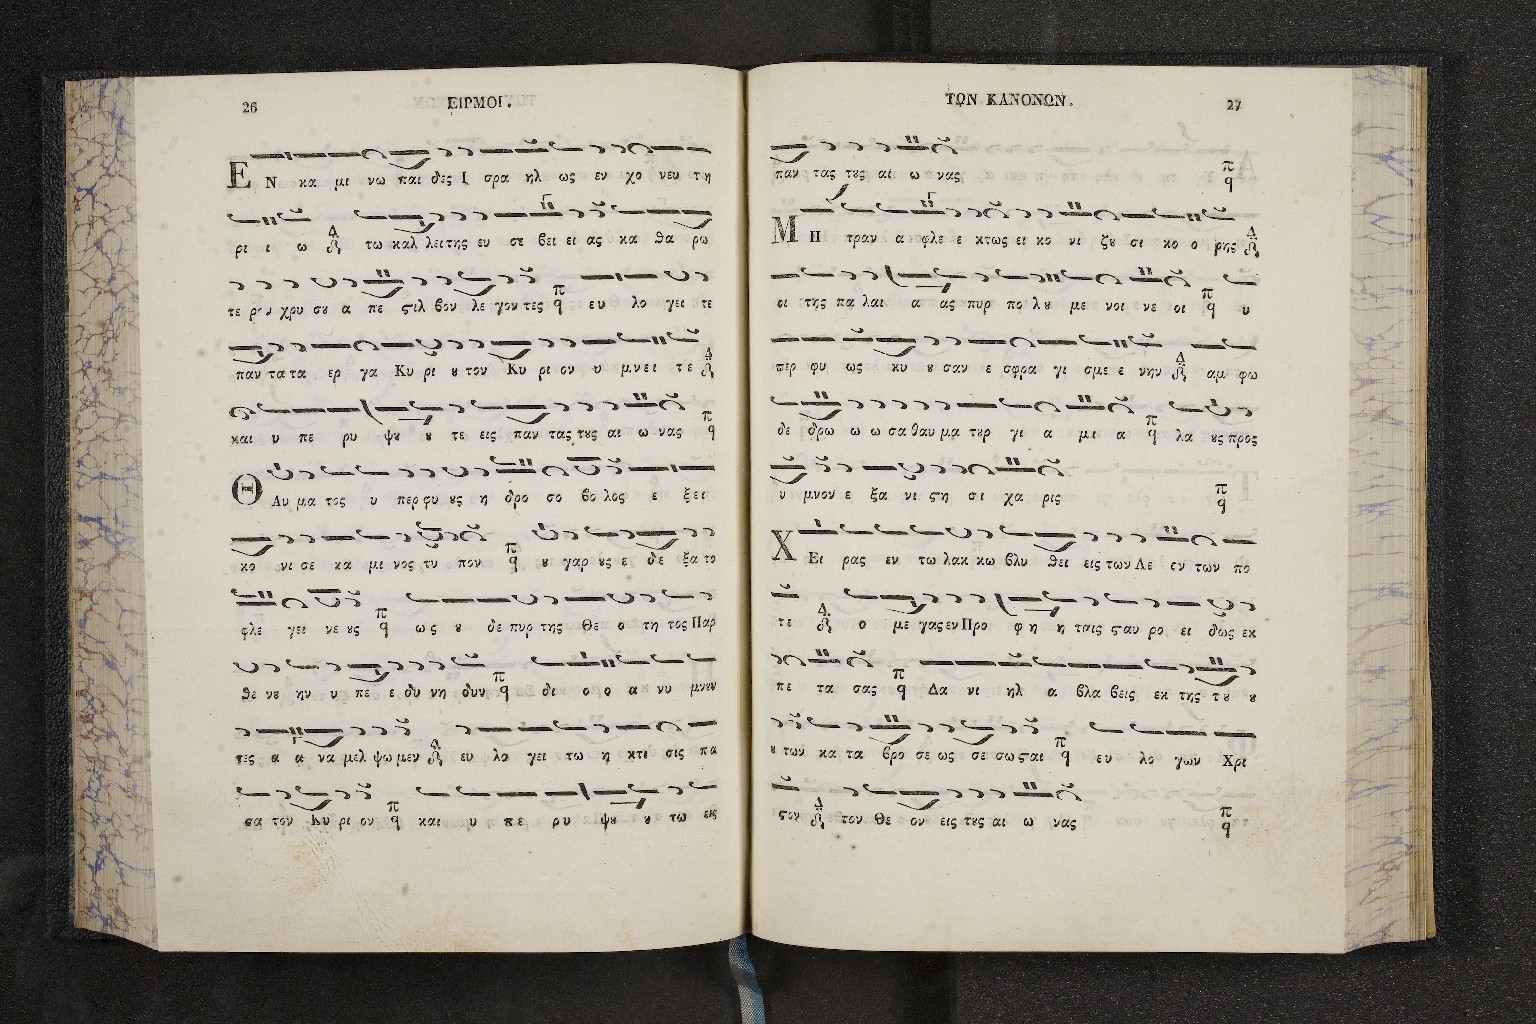 26 ΕΙΡΜΟΙ.
ΕΝ κα μι νω παι δες Ι σρα ηλ ως εν χο νευ τη
ρι ι ω τω καλ λει της ευ σε βει ει ας κα θα ρω
τε ρον χρυ σου α πε ϛιλ βον λε γον τες ευ λο γει τε
παν τα τα ερ γα Κυ ρι ȣ τον Κυ ρι ον υ μνει τε
και υ πε ρυ ψȣ ȣ τε εις παν τας τȣς αι ω νας
ΘΑυ μα τος υ περ φυ ȣς η δρο σο βο λος ε ξει
κο νι σε κα μι νος τυ πον ȣ γαρ ȣς ε δε ξα το
φλε γει νε ȣς ως ȣ δε πυρ της Θε ο τη τος Παρ
θε νε ην υ πε ε δυ νη δυν δι ο ο α νυ μνȣν
τες α α να μελ ψω μεν ευ λο γει τω η κτι σις πα
σα τον Κυ ρι ον και υ πε ρυ ψȣ ȣ τω εις
ΤΩΝ ΚΑΝΟΝΩΝ. 27
παν τας τȣς αι ω νας
ΜΗ τραν α φλε ε κτως ει κο νι ζȣ σι κο ο ρης
οι της πα λαι α ας πυρ πο λȣ με νοι νε οι υ
περ φυ ως κυ ȣ σαν ε σφρα γι σμε ε νην αμ φω
δε δρω ω ω σα θαυ μα τȣρ γι α μι α λα ȣς προς
υ μνον ε ξα νι ϛη σι χα ρις
ΧΕι ρας εν τω λακ κω βλυ θει εις των Λε εν των πο
τε ο με γας εν Προ φη η ταις ϛαυ ρο ει δως εκ
πε τα σας Δα νι ηλ α βλα βεις εκ της τȣ ȣ
ȣ των κα τα βρο σε ως σε σω ϛαι ευ λο γων Χρι
ϛον τον Θε ον εις τȣς αι ω νας